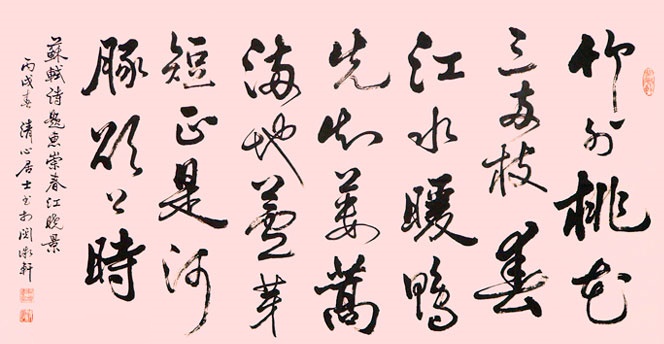 竹外桃花
三兩枝春
江水暖鴨
先知蔞蒿
滿地蘆芽
短正是河
豚欲上時
蘇軾詩題惠崇春江晚景
丙戌春清心居士書於軒